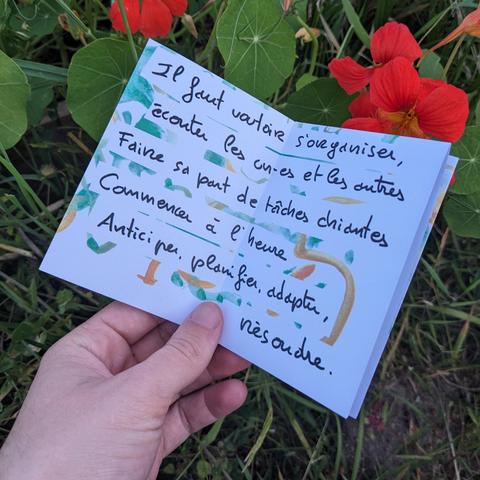 Il faut vouloir s'organiser,
écouter les un·es et les autres
Faire sa part de tâches chiantes
Commencer à l'heure
Anticiper, planifier, adapter,
résoudre.